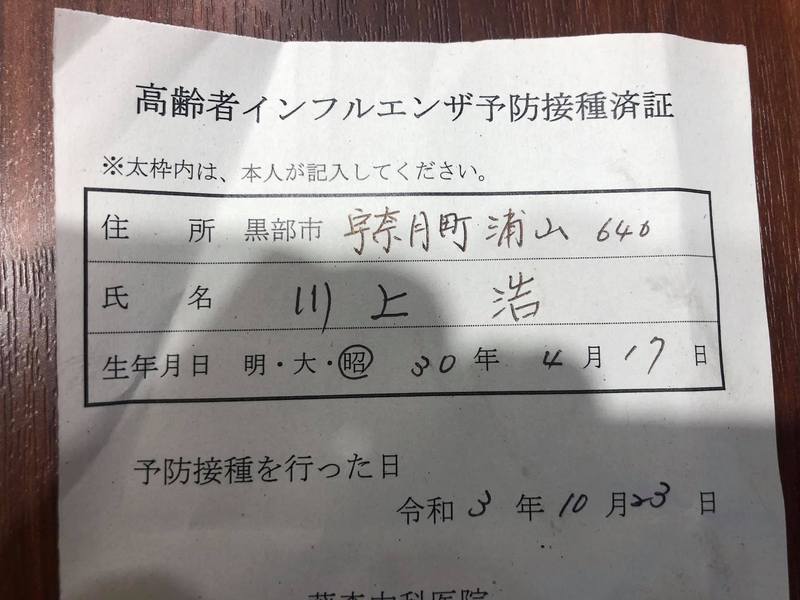 高齢者インフルエンザ予防接種済証
※太枠内は、本人が記入してください。
住 所 黒部市 宇奈月町 浦山 640
氏 名 川上 浩
生年月日 明・大・昭 30年 4月 17日
予防接種を行った日
令和 3 年 10 月 23 日
内科医院